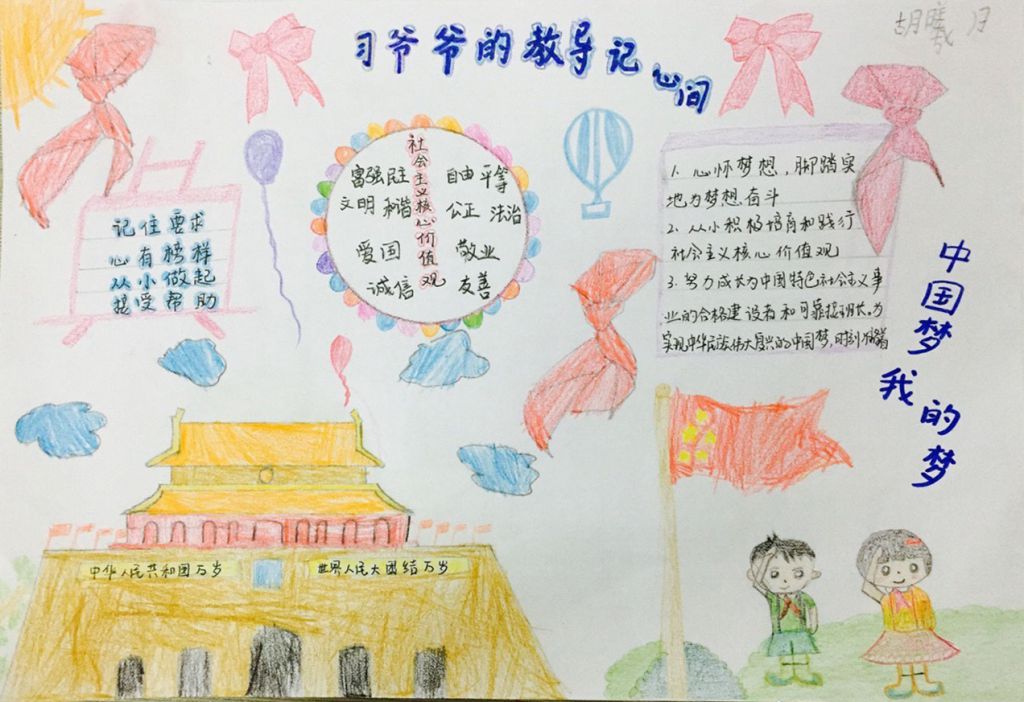 习爷爷的教导记心间
胡曦月
记住要求
心有榜样
从小做起
接受帮助
社会主义核心价值观
富强民主
文明和谐
爱国
诚信
自由平等
公正 法治
敬业
友善
1. 心怀梦想，脚踏实
地为梦想奋斗
2. 从小积极培育和践行
社会主义核心价值观
3. 努力成长为中国特色社会主义事
业的合格建设者和可靠接班人。为
实现中华民族伟大复兴的中国梦，时刻准备着
中国梦
我的梦
中华人民共和国万岁
世界人民大团结万岁